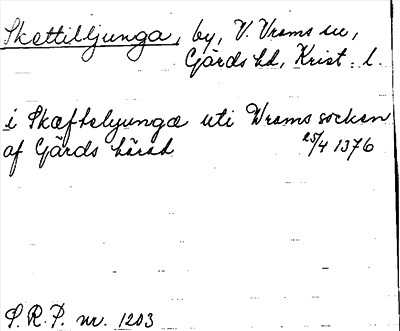 Skettilljunga, by, V. Vrams sn,
Gärds hd, Krist. l.
i Skæftelyunge uti Wrams socken
af Gärds härad 25/4 1376
S.R.P. nr. 1203